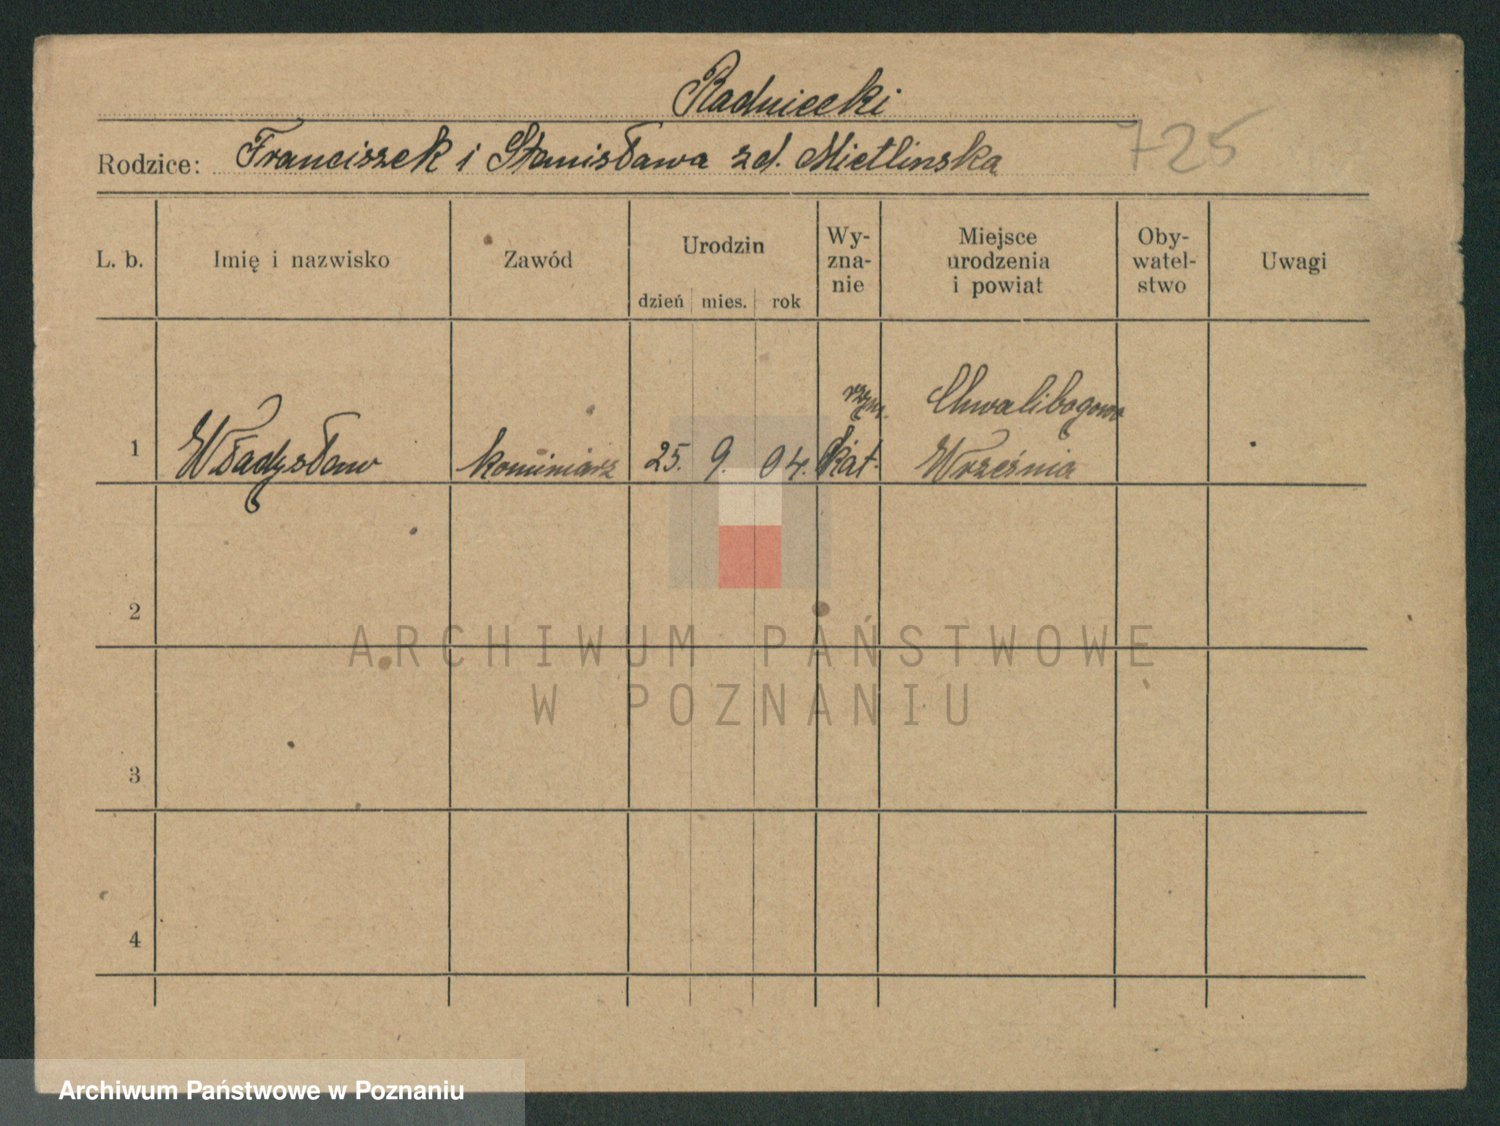 Radniecki
Rodzice: Franciszek i Stanisława zd. Mietlinska
725
L. b. Imię i nazwisko Zawód Urodzin dzień mies. rok Wy-zna-nie Miejsce urodzenia i powiat Oby-watel-stwo Uwagi
rzym. Chwalibogowo
1 Władysław kominiarz 25. 9. 04. kat. Września
2
ARCHIWUM PAŃSTWOWE
W POZNANIU
3
4
Archiwum Państwowe w Poznaniu